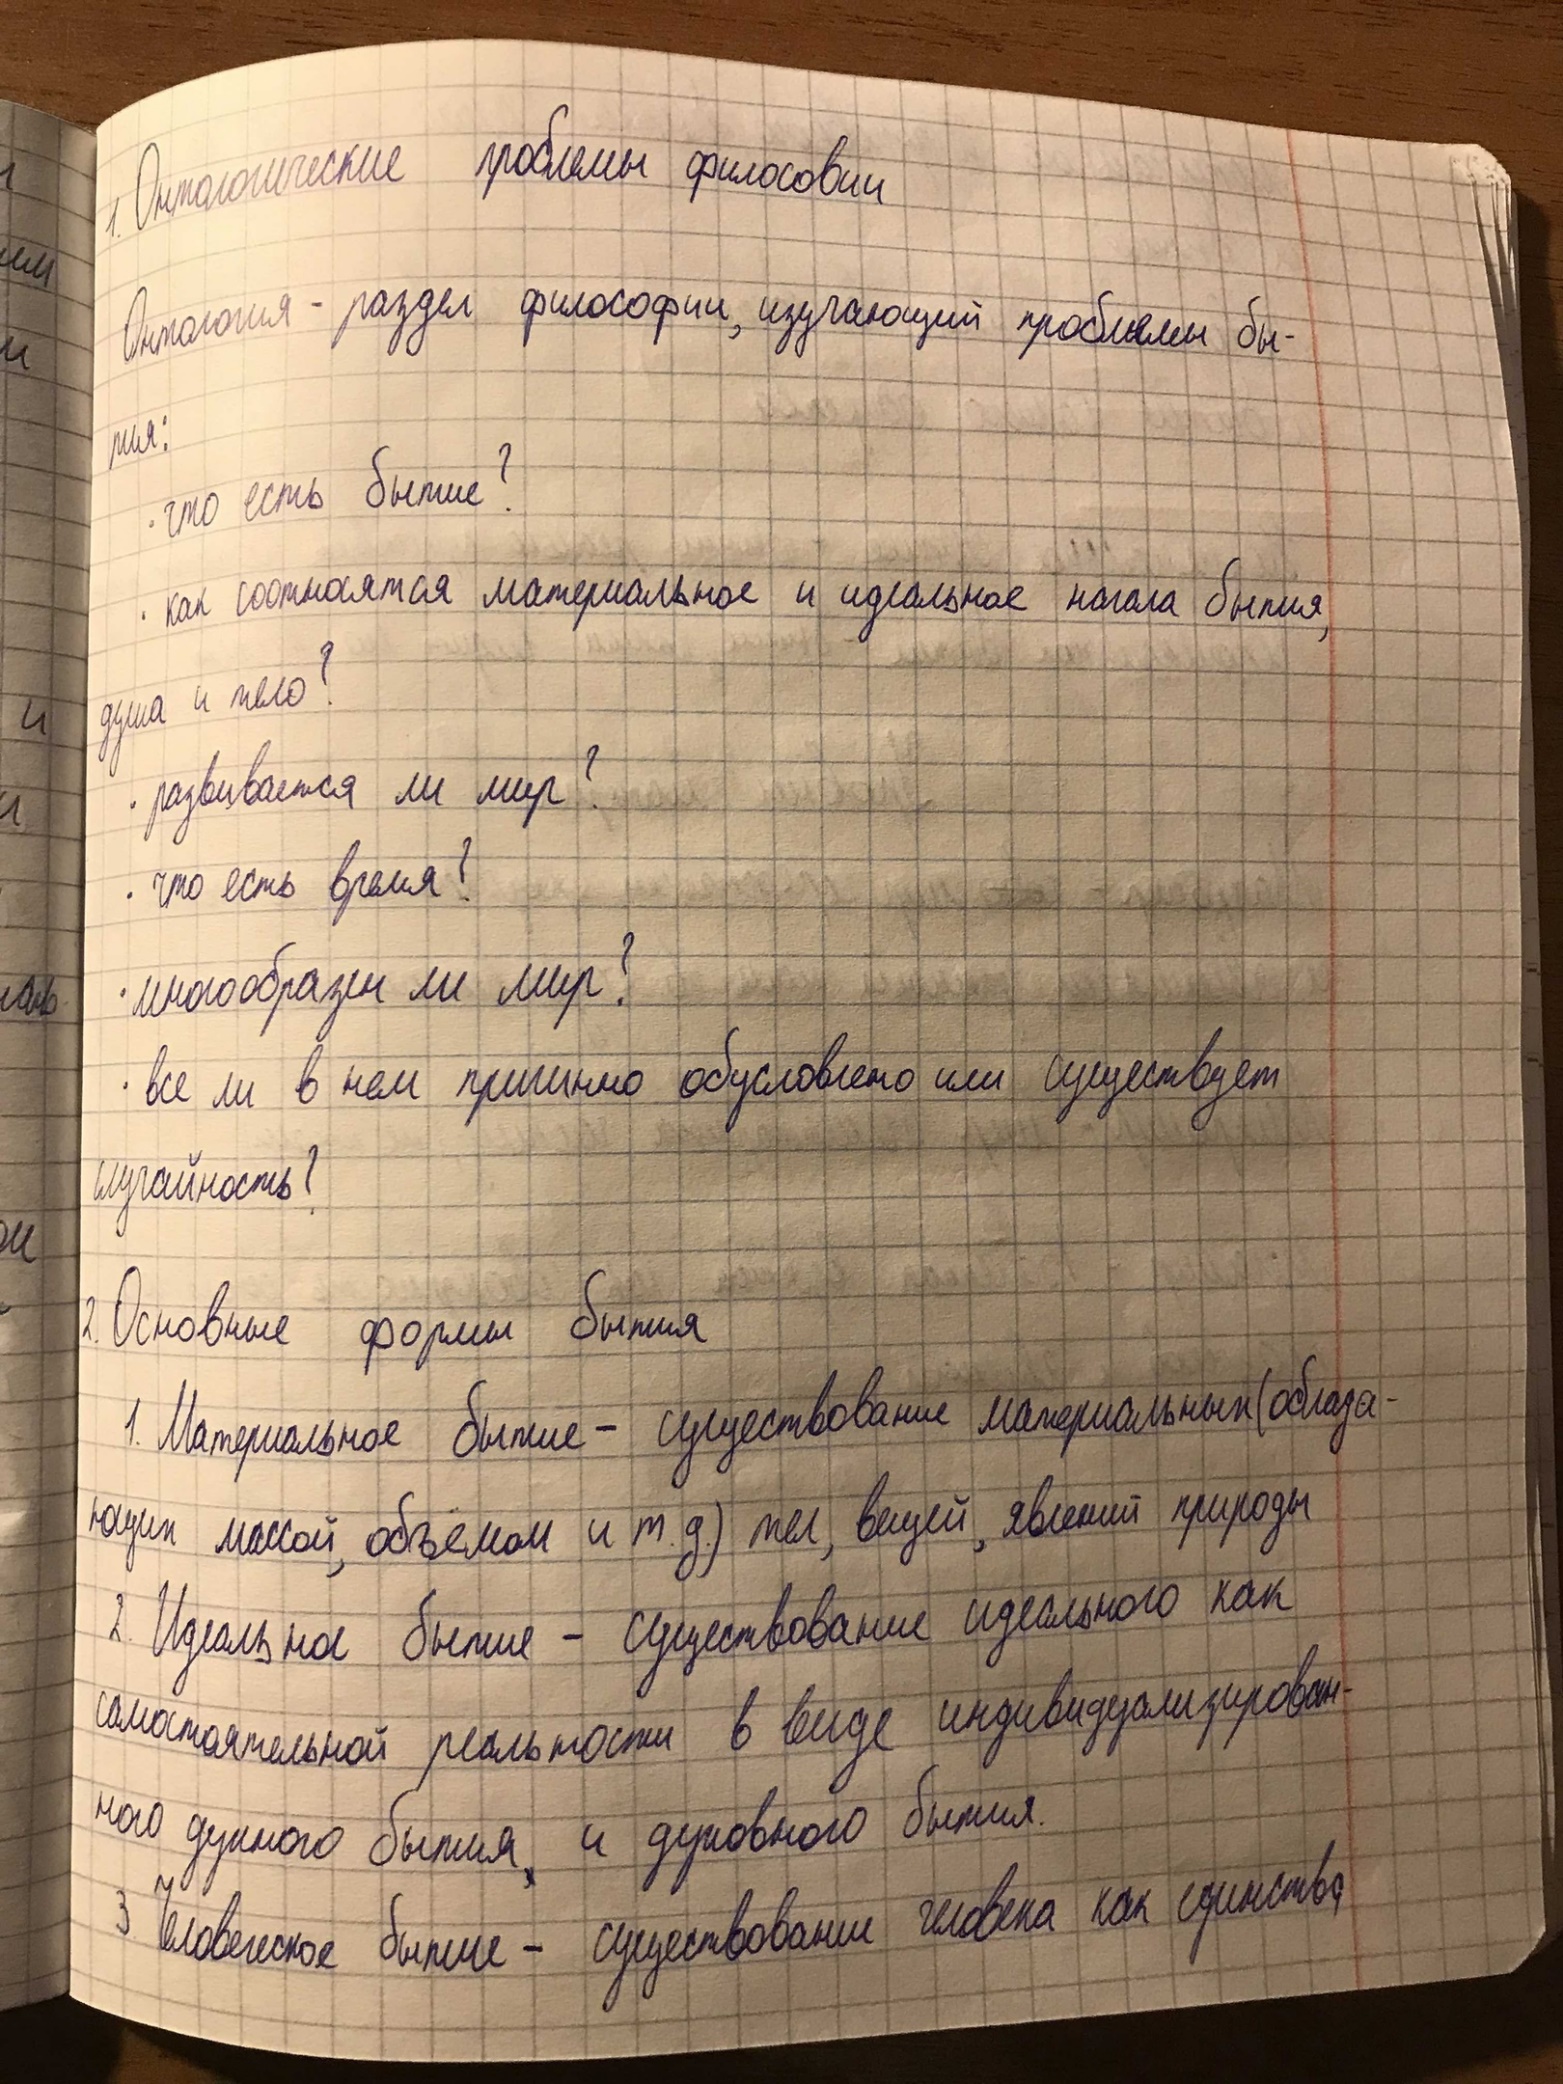 1. Онтологические проблемы филосовии
Онтология - раздел философии, изучающий проблемы бы-
тия:
· что есть бытие?
· как соотносятся материальное и идеальное начала бытия,
душа и тело?
· развивается ли мир?
· что есть время?
· многообразен ли мир?
· все ли в нем причинно обусловлено или существует
случайность?
2. Основные формы бытия
1. Материальное бытие - существование материальных (облада-
ющих массой, объёмом и т.д.) тел, вещей, явлений природы
2. Идеальное бытие - существование идеального как
самостоятельной реальности в виде индивидуализирован-
ного духного бытия, и духовного бытия.
3 Человеческое бытие - существование человека как единства